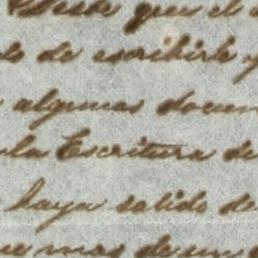 Desde que el
de escribirle y
algunas docum
la Escritura de
haya salido de
mas de un